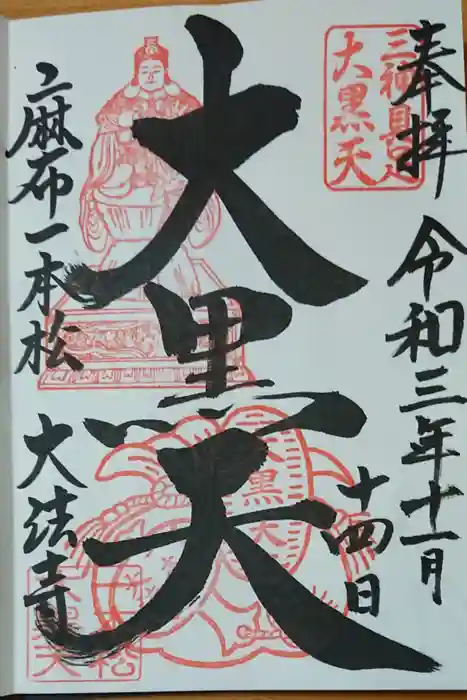 奉拝 令和三年十一月
十四日
三神具足
大黒天
大黒天
大黒天
元麻布一本松 大法寺